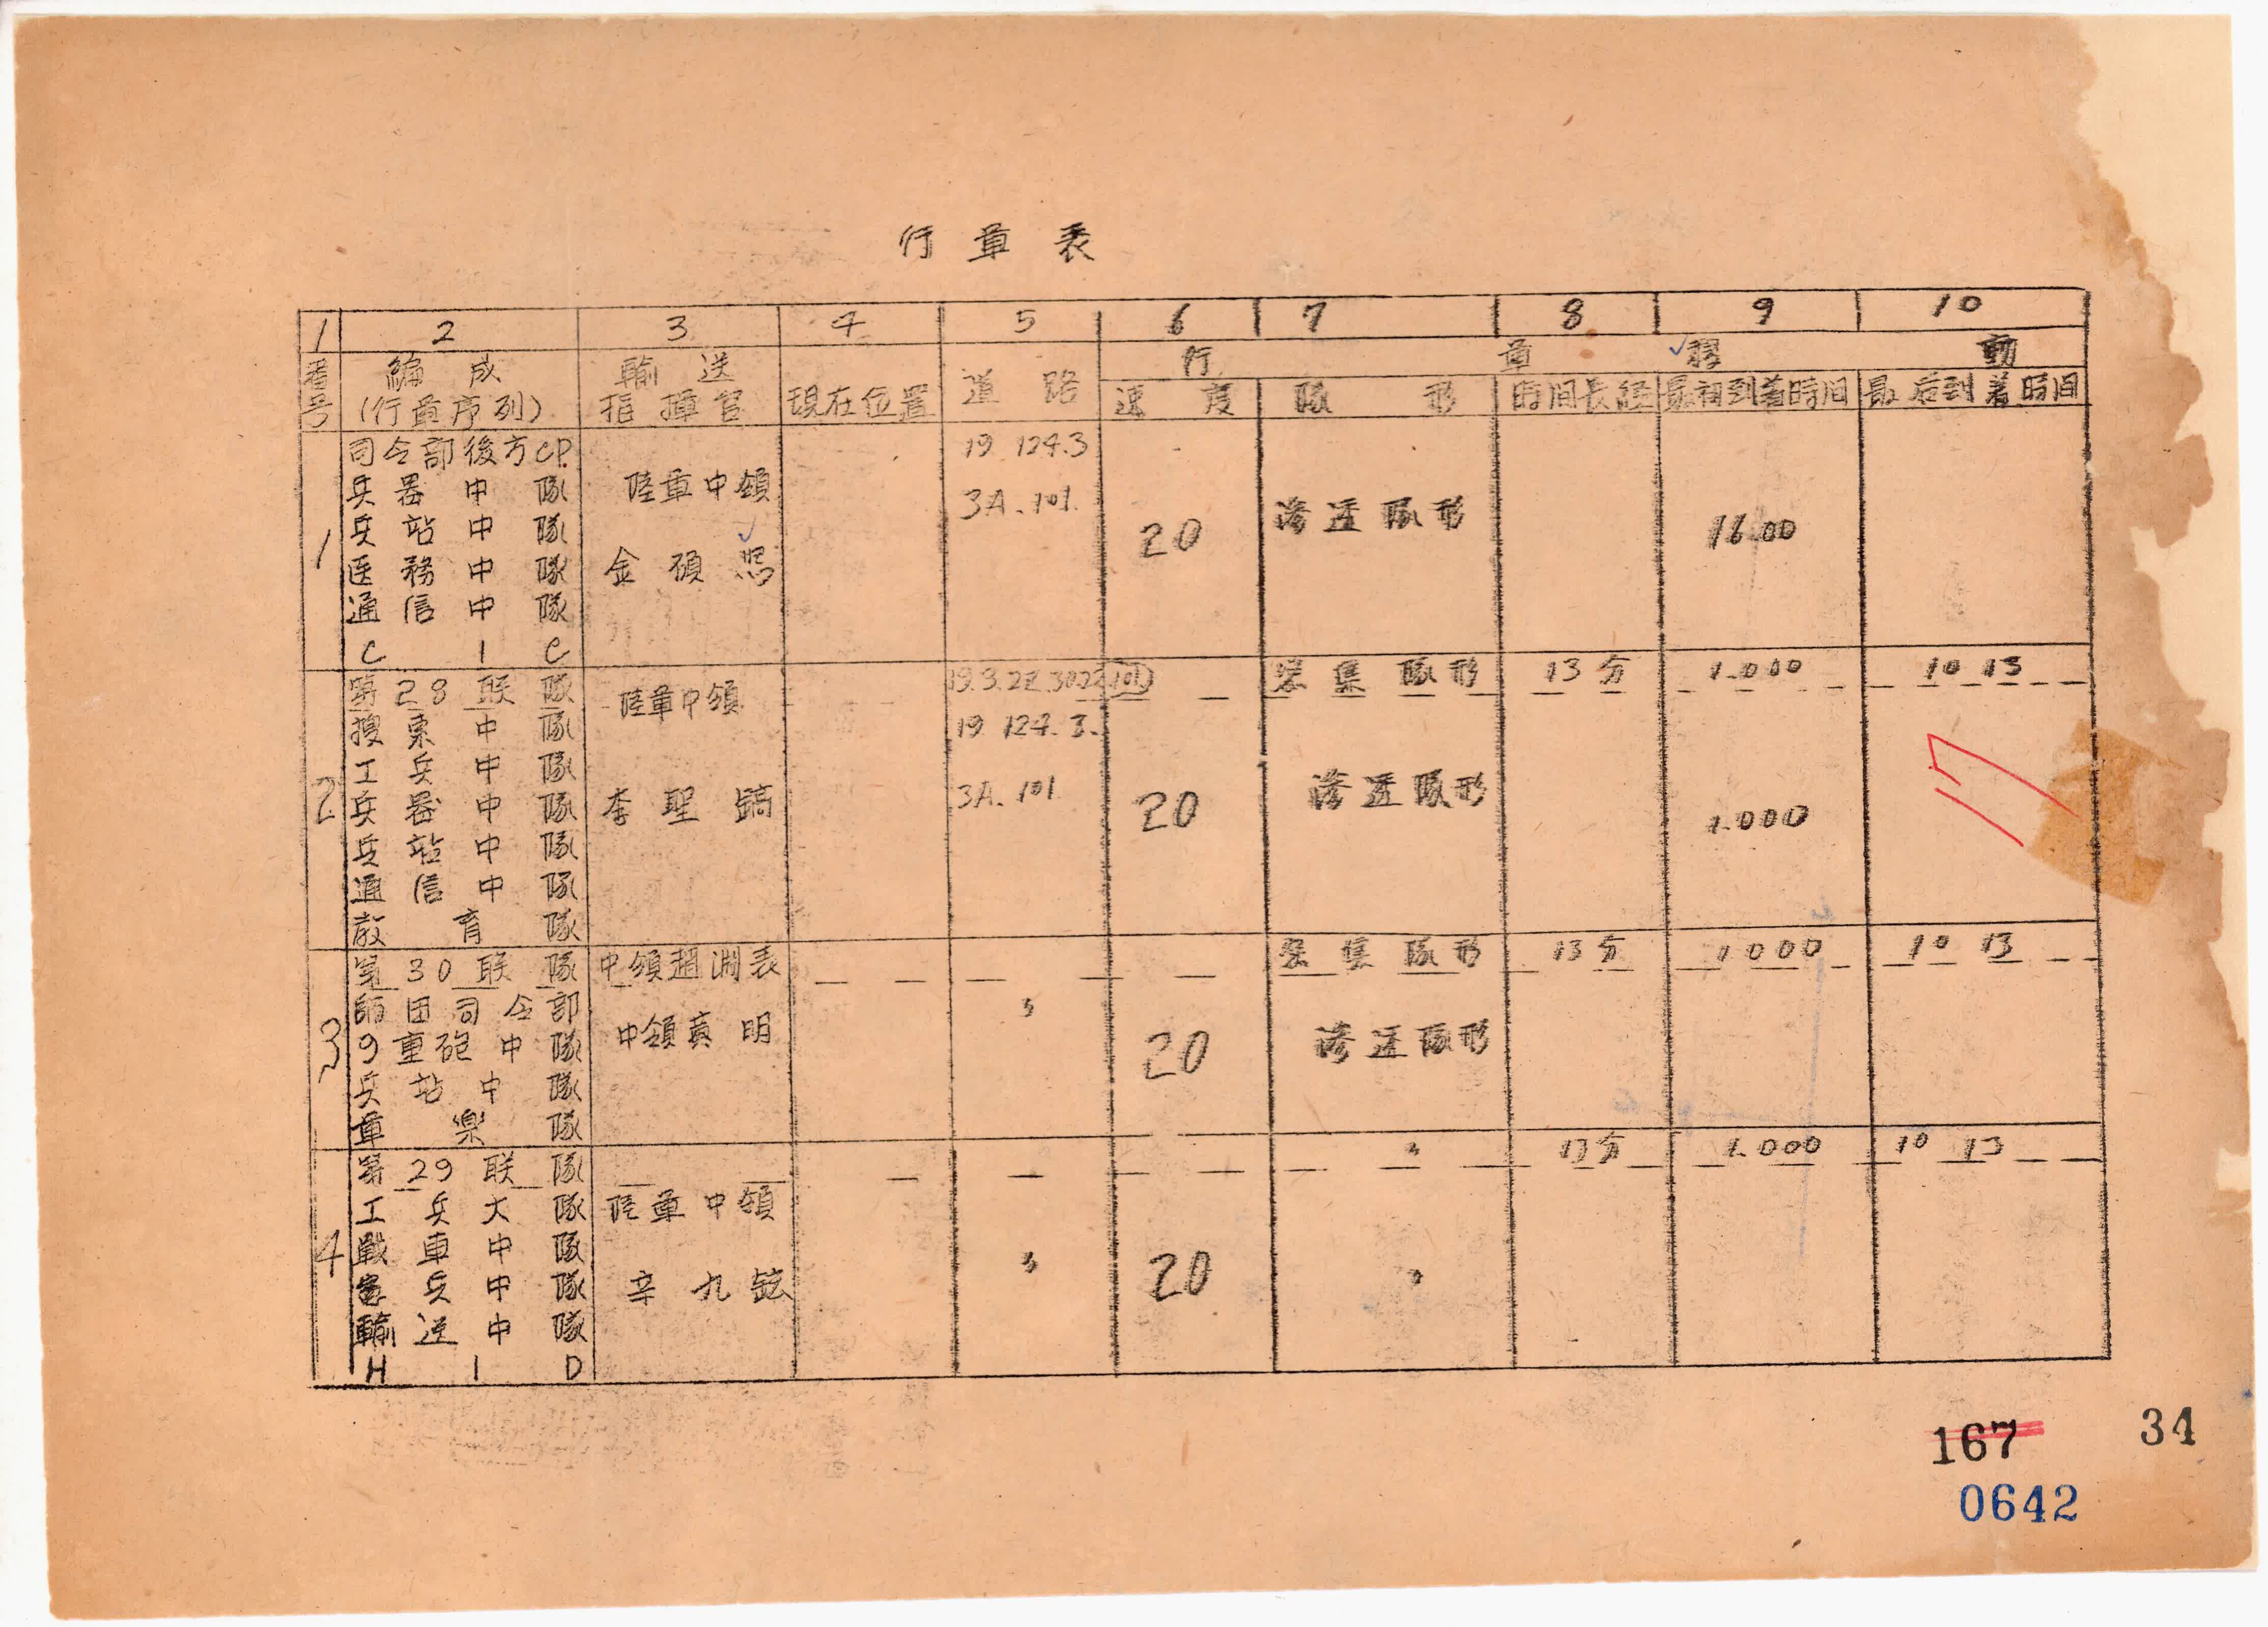 行軍表
1 2 3 4 5 6 7 8 9 10
番号 編成 (行軍序列) 輸送 指揮官 現在位置 道路 行軍移動
速度 隊形 時間長経 最初到着時間 最后到着時間
1
司令部後方CP.
兵器中隊
兵站中隊
医務中隊
通信中隊
C I C
陸軍中領
金碩
19 124.3
3A.101.
20
滲透隊形
16.00
2
第28联隊
陸軍中領
密集隊形 13分 1.000 10 13
捜索中隊
工兵中隊
兵器中隊
兵站中隊
通信中隊
教育隊
李聖鎬
19 124.3.
3A.101
20
滲透隊形
1.000
3
第30联隊
中領趙淵表
密集隊形 13分 1000 10 13
師団司令部
9重砲中隊
兵站中隊
軍楽隊
中領 明
〃
20
滲透隊形
4
第29联隊
〃 13分 1.000 10 13
工兵大隊
戦車中隊
兵中隊
輸送中隊
H I D
陸軍中領
辛九鉉
〃
20
〃
167
34
0642